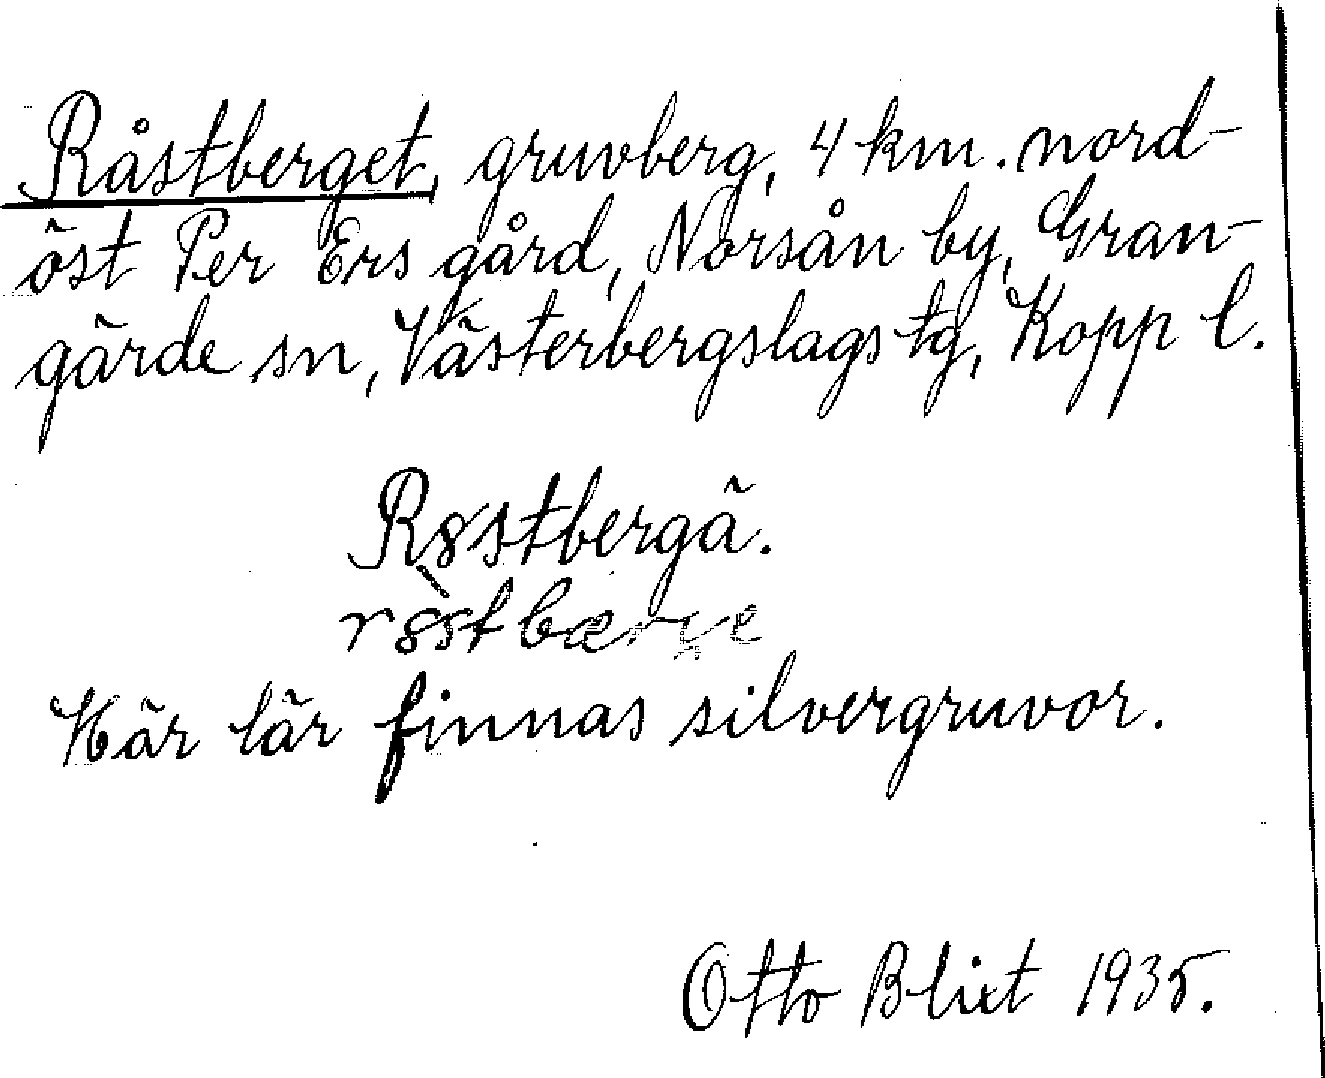 Råstberget, gruvberg, 4 km. nord-
öst Per Ers gård, Norsån by, Gran-
gärde sn, Västerbergslags tg, Kopp l.
Rȣstbergä.
rȣ̀stbærge
Här lär finnas silvergruvor.
Otto Blixt 1935.